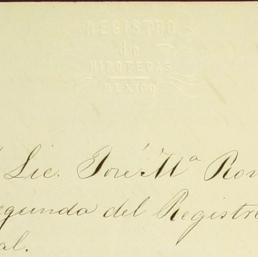 REGISTRO
de
HIPOTECAS
MEXICO
Lic. José Mª Rom
egunda del Registro
al.